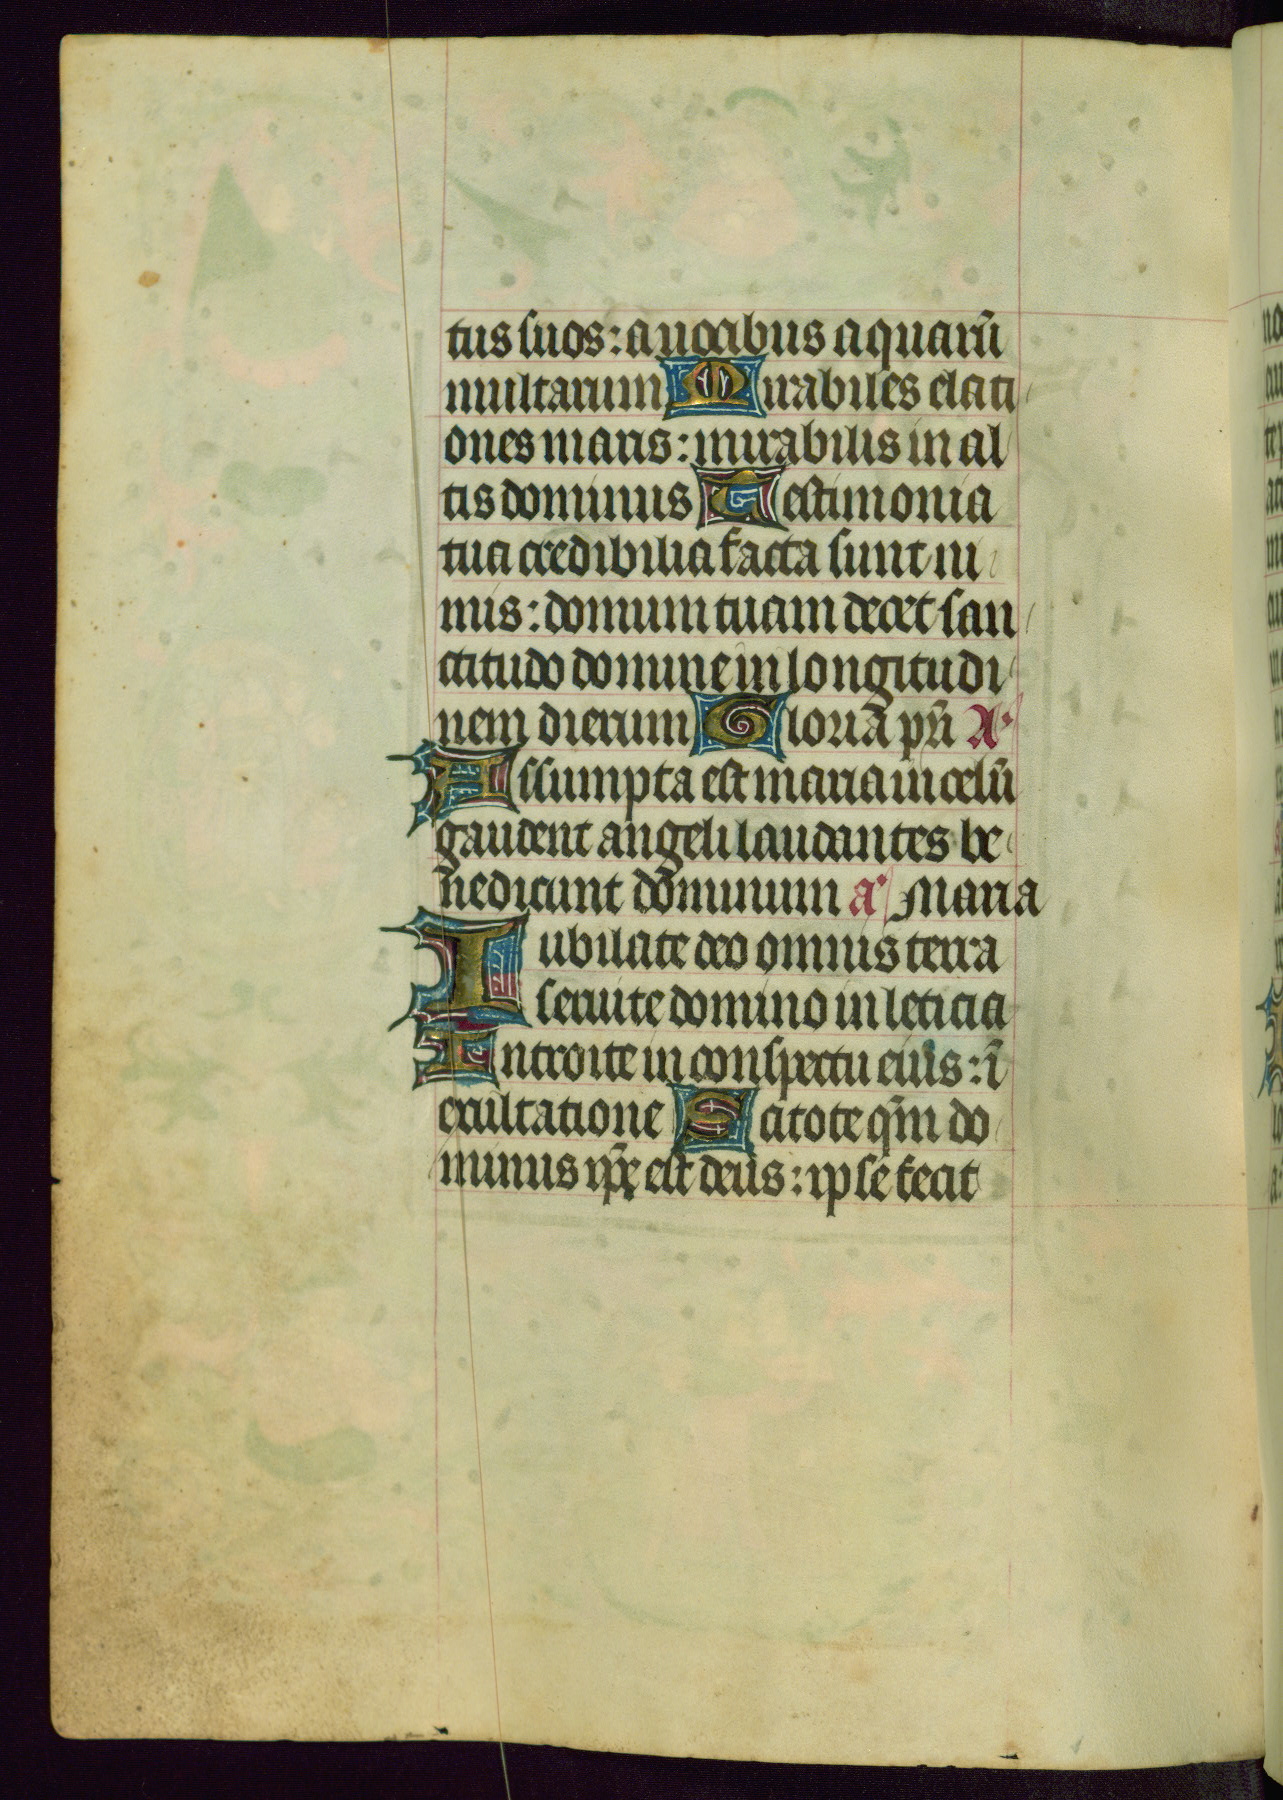 tus suos : a vocibus aquarū
multarum Mirabiles elati
ones maris : mirabilis in al
tis dominus Testimonia
tua credibilia facta sunt ni
mis : domum tuam decet san
ctitudo domine in longitudi
nem dierum Gloria pr̄i A.
Assumpta est maria in celū
gaudent angeli laudantes be
nedicunt dominum a. Maria
Iubilate deo omnis terra
seruite domino in leticia
Introite in conspectu eius : ī
exultatione Scitote qm̄ do
minus ip̄e est deus : ipse fecit